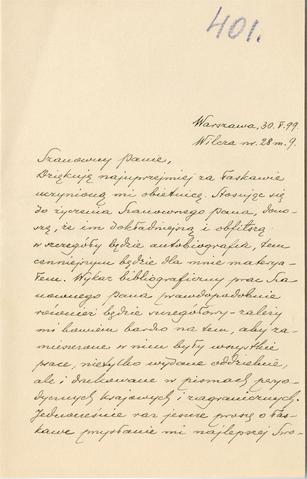 401.
Warszawa, 30.V.99
Wilcza nr. 28 m. 9.
Szanowny Panie,
Dziękuję najuprzejmiej za łaskawie
uczynioną mi obietnicę. Stosując się
do życzenia Szanownego Pana, dono-
szę, że im dokładniejszą i obfitszą
w szczegóły będzie autobiografia, tem
cenniejszym będzie dla mnie materya-
łem. Wykaz bibliograficzny prac Sza-
nownego Pana prawdopodobnie
również będzie szczegółowy - zależy
mi bowiem bardzo na tem, aby za-
mieszczone w nim były wszystkie
prace, nietylko wydane oddzielnie,
ale i drukowane w pismach peryo-
dycznych krajowych i zagranicznych.
Jednocześnie raz jeszcze proszę o łas-
kawe przysłanie mi najlepszej Sza-